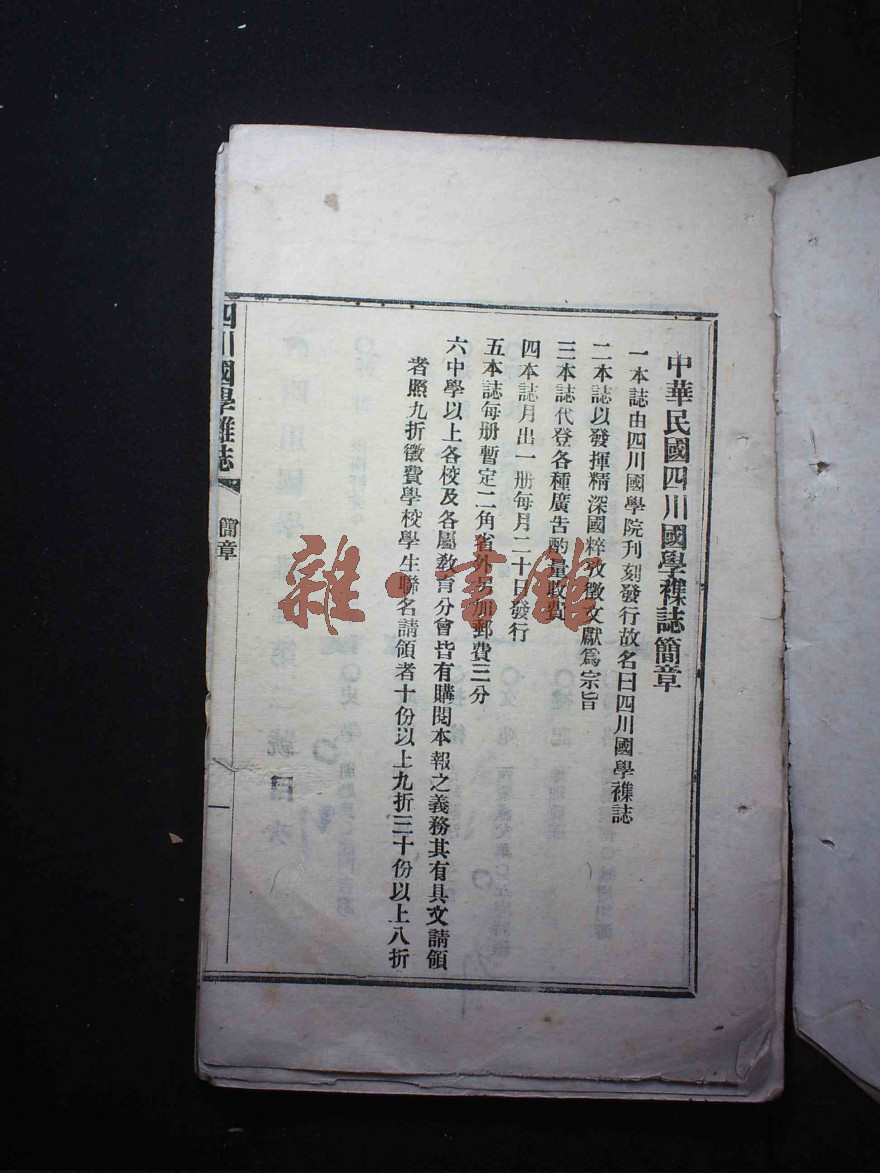 中華民國四川國學襍誌簡章
一本誌由四川國學院刊刻發行故名曰四川國學襍誌
二本誌以發揮精深國粹攷徵文獻爲宗旨
三本誌代登各種廣告酌量收費
四本誌月出一册每月二十日發行
五本誌每册暫定二角省外另加郵費三分
六中學以上各校及各屬敎育分會皆有購閱本報之義務其有具文請領
者照九折徵費學校學生聯名請領者十份以上九折三十份以上八折
四川國學雜誌
簡章
一
雜·書館